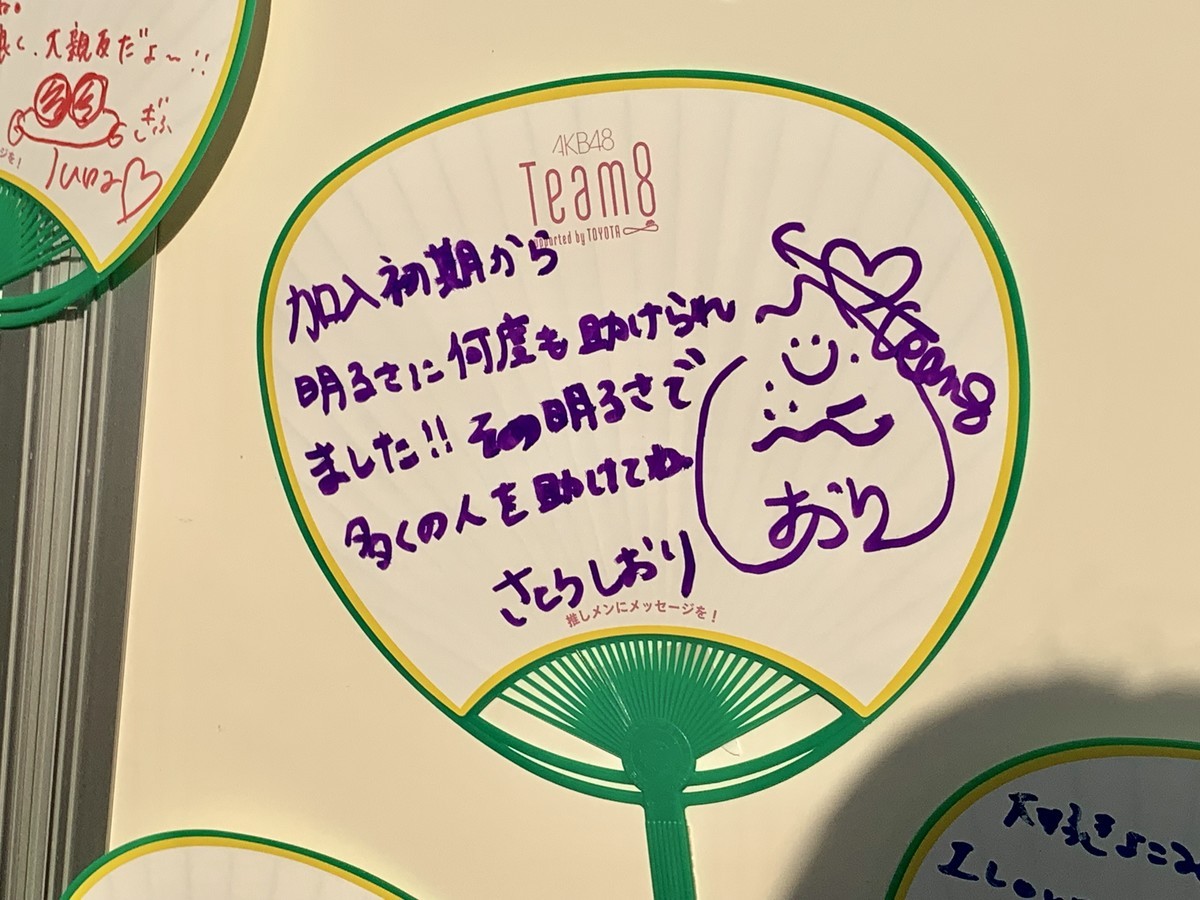 良く、大親友だよ〜!!
ぎふ
luna♡
AKB48
Team8
supported by TOYOTA
加入初期から
明るさに何度も助けられ
ました!! その明るさで
多くの人を助けてね。
さとうしおり
Team8
おり
推しメンにメッセージを!
大好きよこ
I Lov